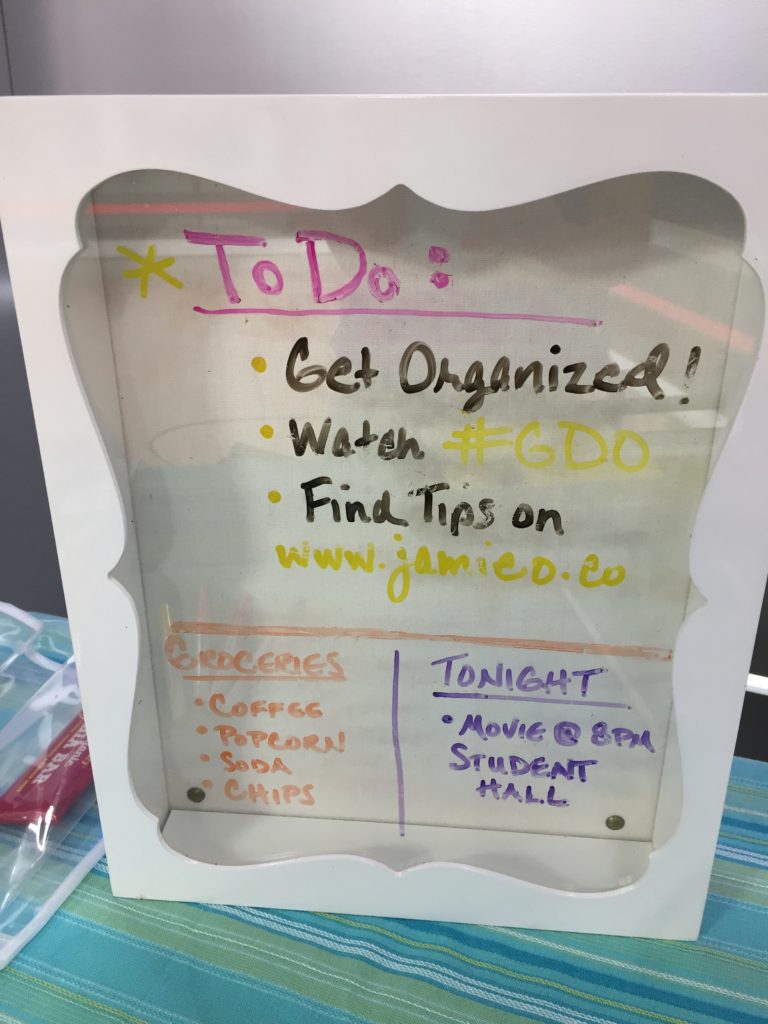 * To Do:
• Get Organized!
• Watch #GDO
• Find Tips on
www.jamieo.co
GROCERIES
• COFFEE
• POPCORN
• SODA
• CHIPS
TONIGHT
• MOVIE @ 8PM
STUDENT
HALL
BAR